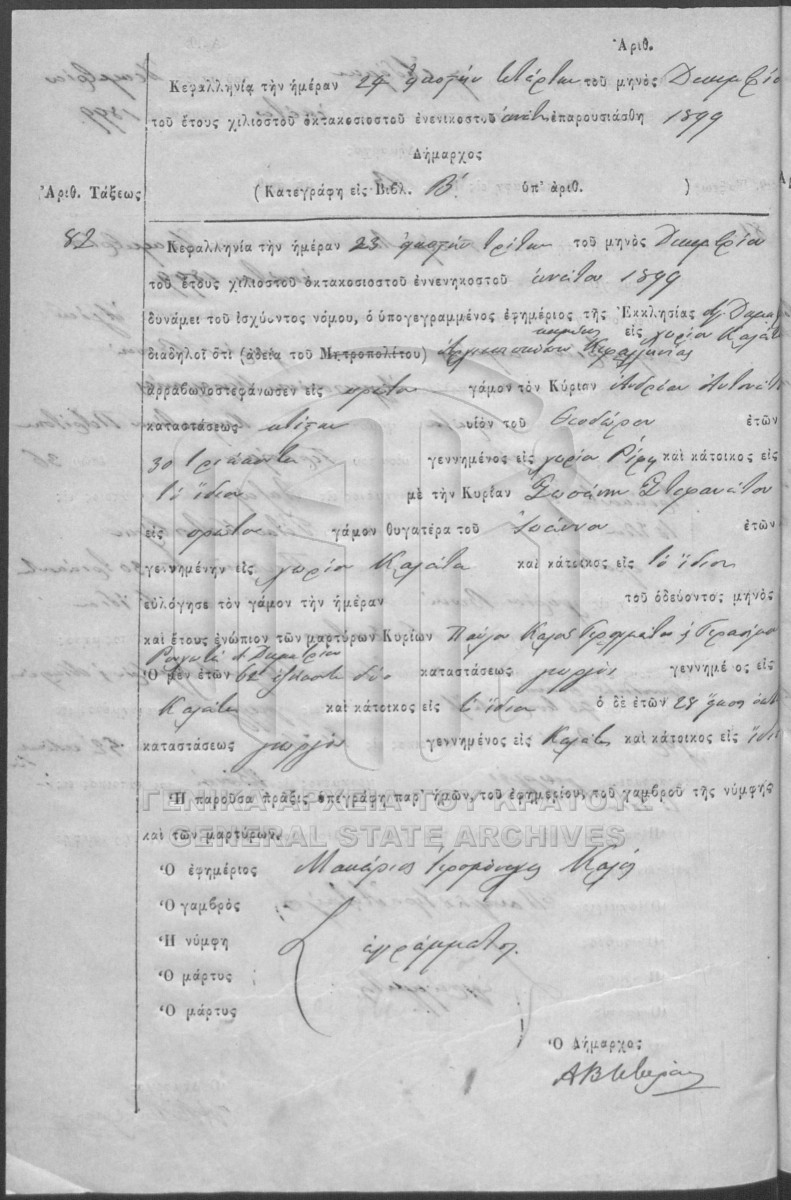 Ἀριθ.
Κεφαλληνίᾳ τὴν ἡμέραν 24 εἰκοστὴν τετάρτην τοῦ μηνὸς Δεκεμβρίο
τοῦ ἔτους χιλιοστοῦ ὀκτακοσιοστοῦ ἐνενικοστοῦ ἐνάτου ἐπαρουσιάσθη 1899
Δήμαρχος
Ἀριθ. Τάξεως
(Κατεγράφη εἰς Βιβλ. Β' ὑπ' ἀριθ. )
82
Κεφαλληνίᾳ τὴν ἡμέραν 23 εἰκοστὴν τρίτην τοῦ μηνὸς Δεκεμβρίου
τοῦ ἔτους χιλιοστοῦ ὀκτακοσιοστοῦ ἐννενηκοστοῦ ἐνάτου 1899
δυνάμει τοῦ ἰσχύοντος νόμου, ὁ ὑπογεγραμμένος ἐφημέριος τῆς Ἐκκλησίας
εἰς χωρίον Καλάτα
διαδηλοῖ ὅτι (ἀδείᾳ τοῦ Μητροπολίτου) Κεφαλληνίας
ἀρραβωνοστεφάνωσεν εἰς πρῶτον γάμον τὸν Κύριον Ἀνδρέαν Ἀντωνάτ
καταστάσεως κτίστην υἱὸν τοῦ Θεοδώρου ἐτῶν
30 τριάκοντα γεννημένος εἰς χωρίον Ρίφη καὶ κάτοικος εἰς
τὸ ἴδιον μὲ τὴν Κυρίαν Σωσάνη Στεφανάτου
εἰς πρῶτον γάμον θυγατέρα τοῦ Ἰωάννου ἐτῶν
γεννημένην εἰς χωρίον Καλάτα καὶ κάτοικος εἰς τὸ ἴδιον
εὐλόγησε τὸν γάμον τὴν ἡμέραν τοῦ ὁδεύοντος μηνὸς
καὶ ἔτους ἐνώπιον τῶν μαρτύρων Κυρίων Παῦλον
Δημητρίου
Ὁ μὲν ἐτῶν 62 ἑξήκοντα δύο καταστάσεως γεωργὸς γεννημένος εἰς
Καλάτα καὶ κάτοικος εἰς τὸ ἴδιον ὁ δὲ ἐτῶν 28 εἴκοσι ὀκτ
καταστάσεως γεωργὸς γεννημένος εἰς Καλάτα καὶ κάτοικος εἰς ἴδιο
Ἡ παροῦσα πρᾶξις ὑπεγράφη παρ' ἡμῶν, τοῦ ἐφημερίου, τοῦ γαμβροῦ τῆς νύμφης
ΓΕΝΙΚΑ ΑΡΧΕΙΑ ΤΟΥ ΚΡΑΤΟΥΣ
καὶ τῶν μαρτύρων.
GENERAL STATE ARCHIVES
Ὁ ἐφημέριος Μακάριος ἱερομόναχος
Ὁ γαμβρὸς
Ἡ νύμφη ἀγράμματοι.
Ὁ μάρτυς
Ὁ μάρτυς
Ὁ Δήμαρχος